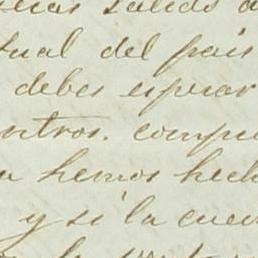 salido a
tual del pais
debes esperar
ntros. compr
a hemos hech
y si la cuen
la